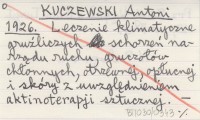 KUCZEWSKI Antoni
1926. Leczenie klimatyczne
gruźliczych schorzeń na-
rządu ruchu, gruczołów
chłonnych, otrzewnej, opłucnej
i skóry z uwzględnieniem
aktinoterapji sztucznej. –